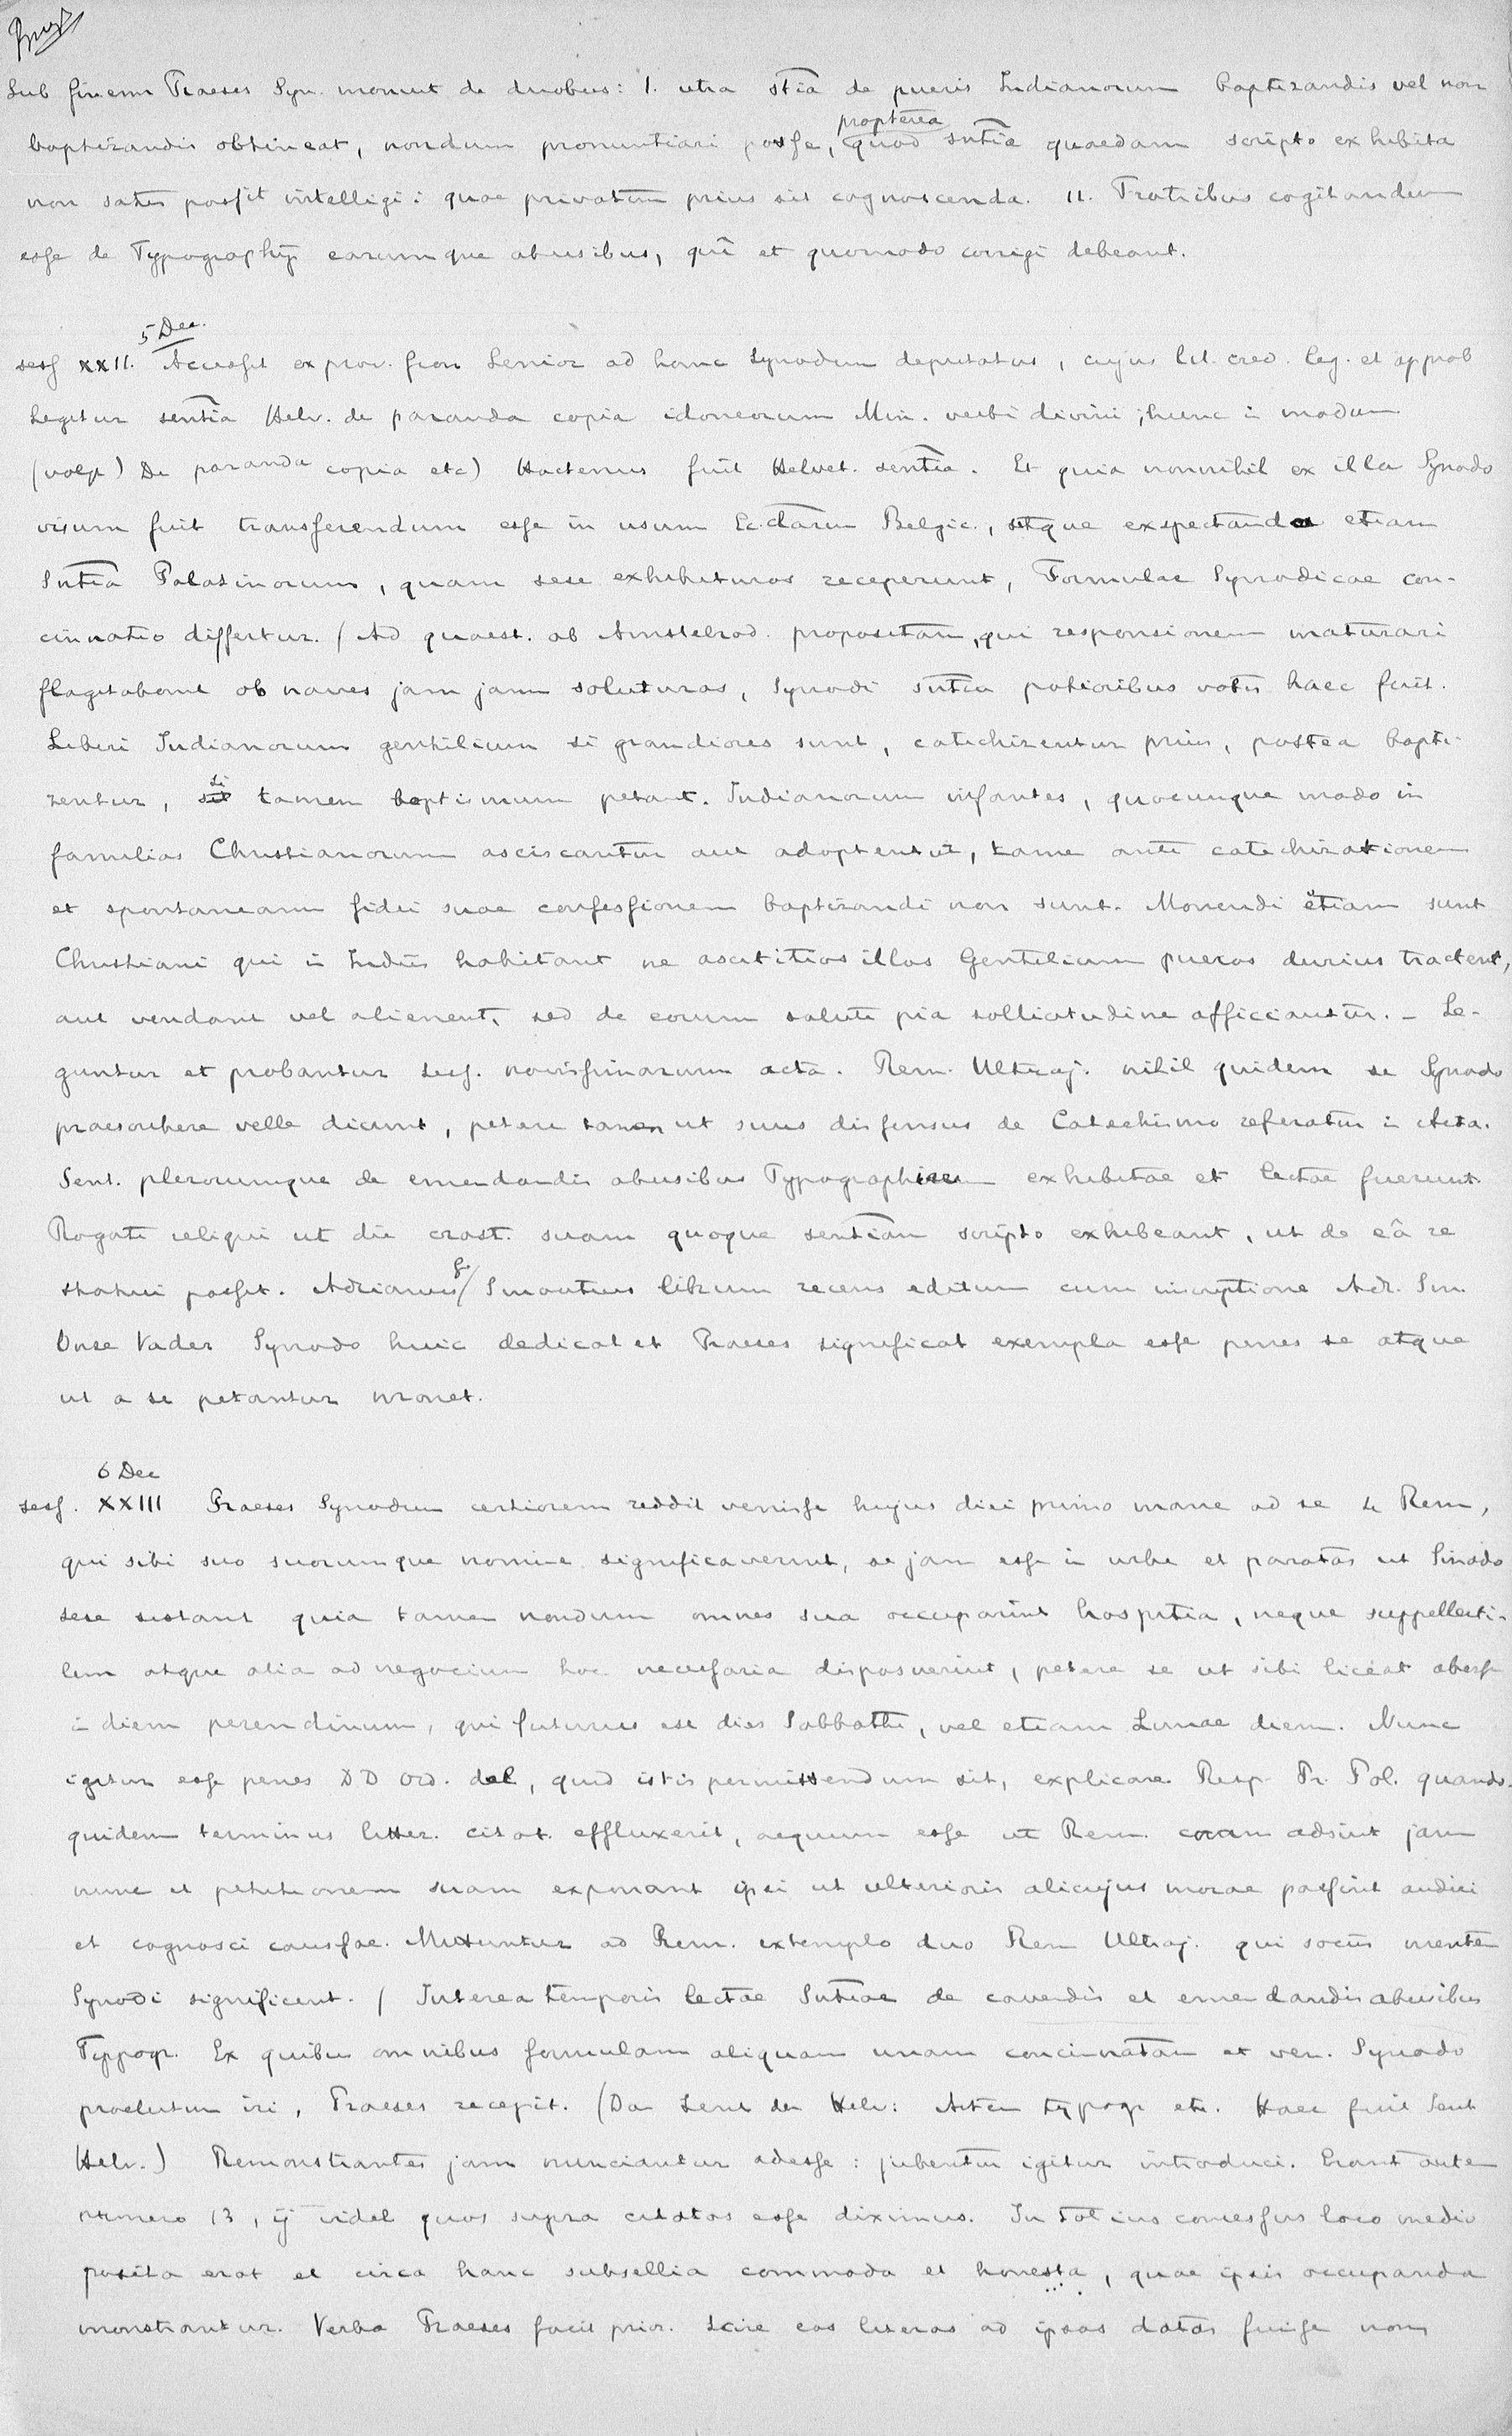 Sub finem Praeses Syn. monuit de duobus: 1. utra stia de pueris Indianorum baptizandis vel non
baptizandis obtineat, nondum pronuntiari posse, propterea quod sntia quaedam scripto exhibita
non satis possit intelligi: quae privatim prius sit cognoscenda. 11. Fratribus cogitandum
esse de Typographijs earumque abusibus, qui et quomodo corrigi debeant.
5 Dec.
sess XXII. Accessit ex prov. fron Senior ad hanc Synodum deputatus, cujus lit. cred. leg. et approb
Legitur sentia Helv. de paranda copia idoneorum Min. verbi divini; hunc i modum
(volgt) De paranda copia etc) Hactenus fuit Helvet. sentia. Et quia nonnihil ex illa Synodo
visum fuit transferendum esse in usum Ecclarum Belgic., sitque exspectanda etiam
Sntia Palatinorum, quam sese exhibituros receperunt, Formulae Synodicae con-
cinnatio differtur. / Ad quaest. ab Amstelrod. propositam, qui responsionem maturari
flagitabant ob naves jam jam soluturas, Synodi sntia potioribus votis haec fuit.
Liberi Indianorum gentilium si grandiores sunt, catechizentur prius, postea bapti-
zentur, si tamen baptismum petant. Indianorum infantes, quocunque modo in
familias Christianorum asciscantur aut adoptentur, tame ante catechizationem
et spontaneam fidei suae confessionem baptizandi non sunt. Monendi etiam sunt
Christiani qui i Indiis habitant ne ascititios illos Gentilium pueros durius tractent,
aut vendant vel alienent, sed de eorum salute pia sollicitudine afficiantur. - Le-
guntur et probantur sess. novissimarum acta. Rem. Ultraj. nihil quidem se Synodo
praescribere velle dicunt, petere tamen ut suus dissensus de Catechismo referatur i Acta.
Sent. plerorumque de emendandis abusibus Typographicum exhibitae et lectae fuerunt.
Rogati reliqui ut die crast. suam quoque sentiam scripto exhibeant, ut de eâ re
statui possit. Adrianus / Smoutius librum recens editum cum inscriptione Adr. Sm.
Onse Vader Synodo huic dedicat et Praeses significat exempla esse penes se atque
ut a se petantur monet.
6 Dec
sess. XXIII Praeses Synodum certiorem reddit venisse hujus diei primo mane ad se 4 Rem,
qui sibi suo suorumque nomine significaverunt, se jam esse i urbe et paratos ut Sinodo
sese sistant quia tamen nondum omnes sua occuparint hospitia, neque suppellecti-
lem atque alia ad negocium hoc necessaria disposuerint, petere se ut sibi liceat abesse
i diem perendinum, qui futurus est dies Sabbathi, vel etiam Lunae diem. Nunc
igitur esse penes DD Ord. del, quid istis permittendum sit, explicare. Resp. Pr. Pol. quando-
quidem terminus litter. citat. effluxerit, aequum esse ut Rem. coram adsint jam
nunc et petitionem suam exponant ipsi ut ulterioris alicujus morae possint audiri
et cognosci caussae. Mittuntur ad Rem. extemplo duo Rem Ultraj. qui sociis mentem
Synodi significent. / Interea temporis lectae Sntiae de cavendis et emendandis abusibus
Typogr. Ex quibus omnibus formulam aliquam unam concinnatam et ven. Synodo
praelutum iri, Praeses recepit. (Dan Sent der Helv: Artem typogr etc. Haec fuit Sent
Helv.) Remonstrantes jam nunciantur adesse: jubentur igitur introduci. Erant autem
numero 13, ij videl quos supra citatos esse diximus. In totius concessus loco medio
posita erat et circa hanc subsellia commoda et honesta, quae ipsis occupanda
monstrantur. Verba Praeses facit prior. Scire eos literas ad ipsos datas fuisse non